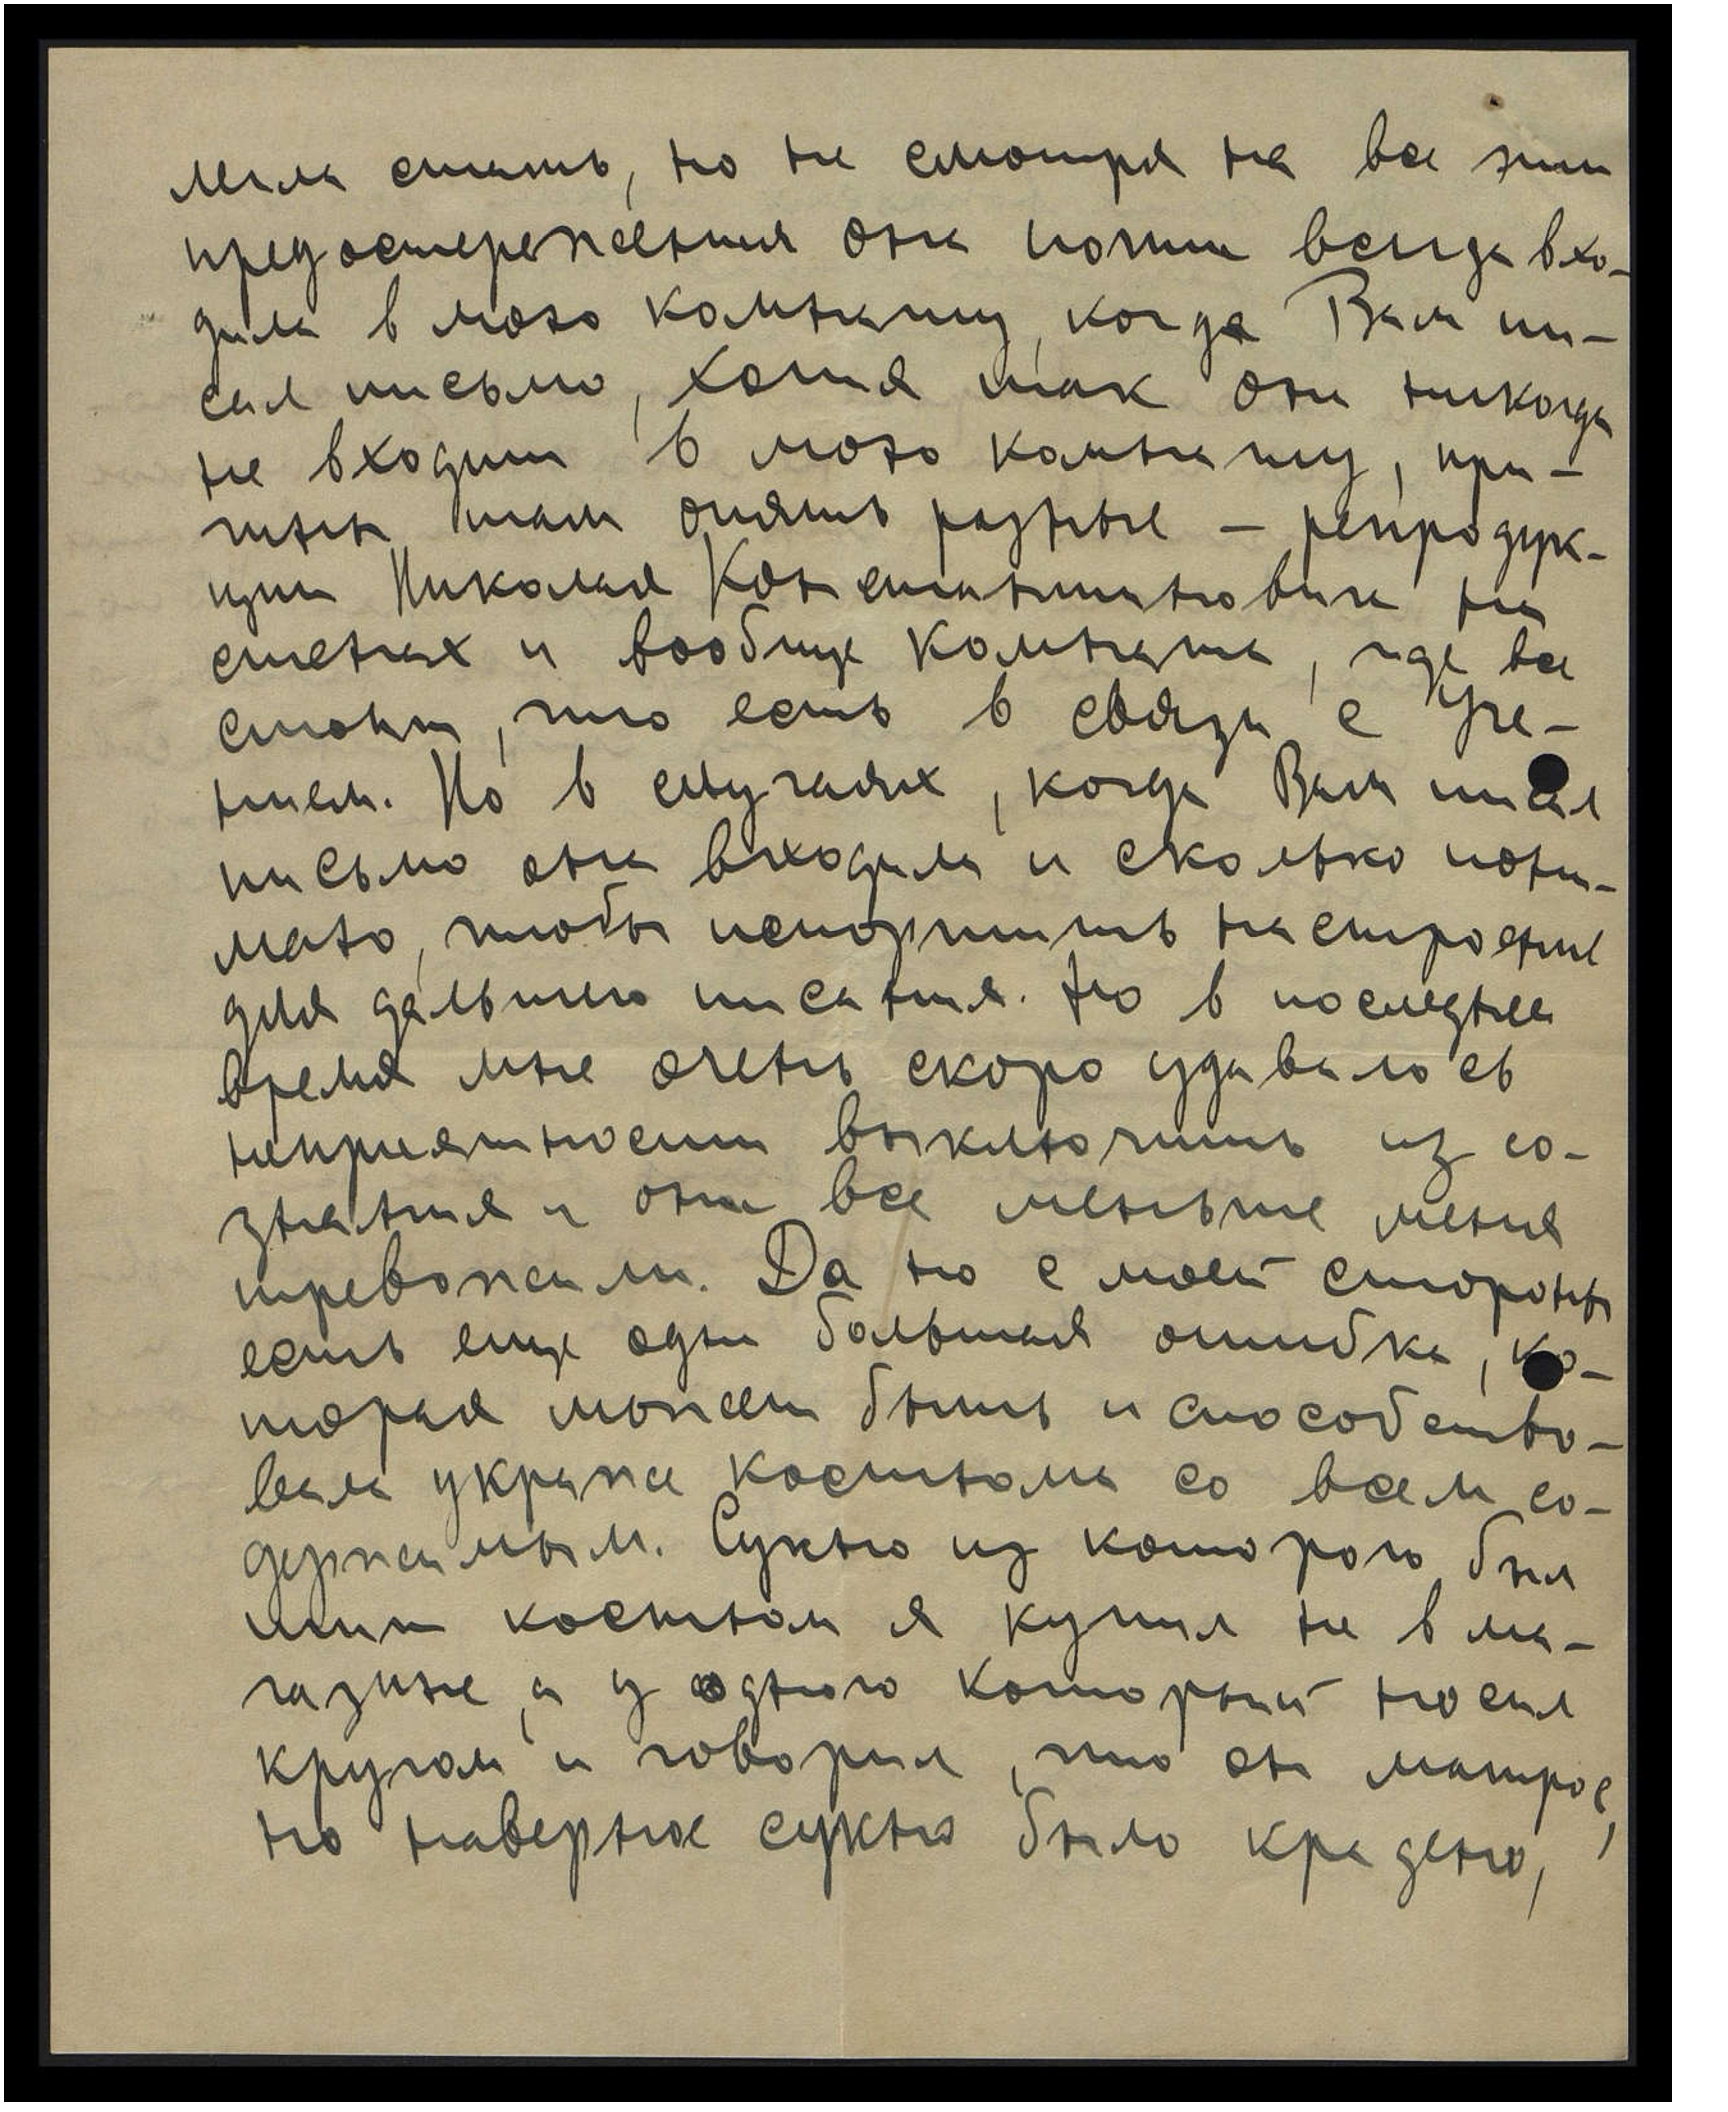 легла спать, но не смотря на все эти
предостережения она почти всегда вхо-
дила в мою комнату, когда Вам пи-
сал письмо, хотя так они никогда
не входит в мою комнату, при-
чины там опять разные – репродук-
ции Николая Константиновича на
стенах и вообще комната, где все
стоит, что есть в связи с Уче-
нием. Но в случаях, когда Вам писал
письмо она входила и сколько пони-
маю, чтобы испортить настроение
для дальшего писания. Но в последнее
время мне очень скоро удавалось
неприятности выключить из со-
знания и они все меньше меня
тревожили. Да но с моей стороны
есть еще одна большая ошибка, ко-
торая может быть и способство-
вала украже костюма со всем со-
держимым. Сукно из которого был
шит костюм я купил не в ма-
газине, а у одного который носил
кругом и говорил, что он матрос,
но наверное сукно было крадено,